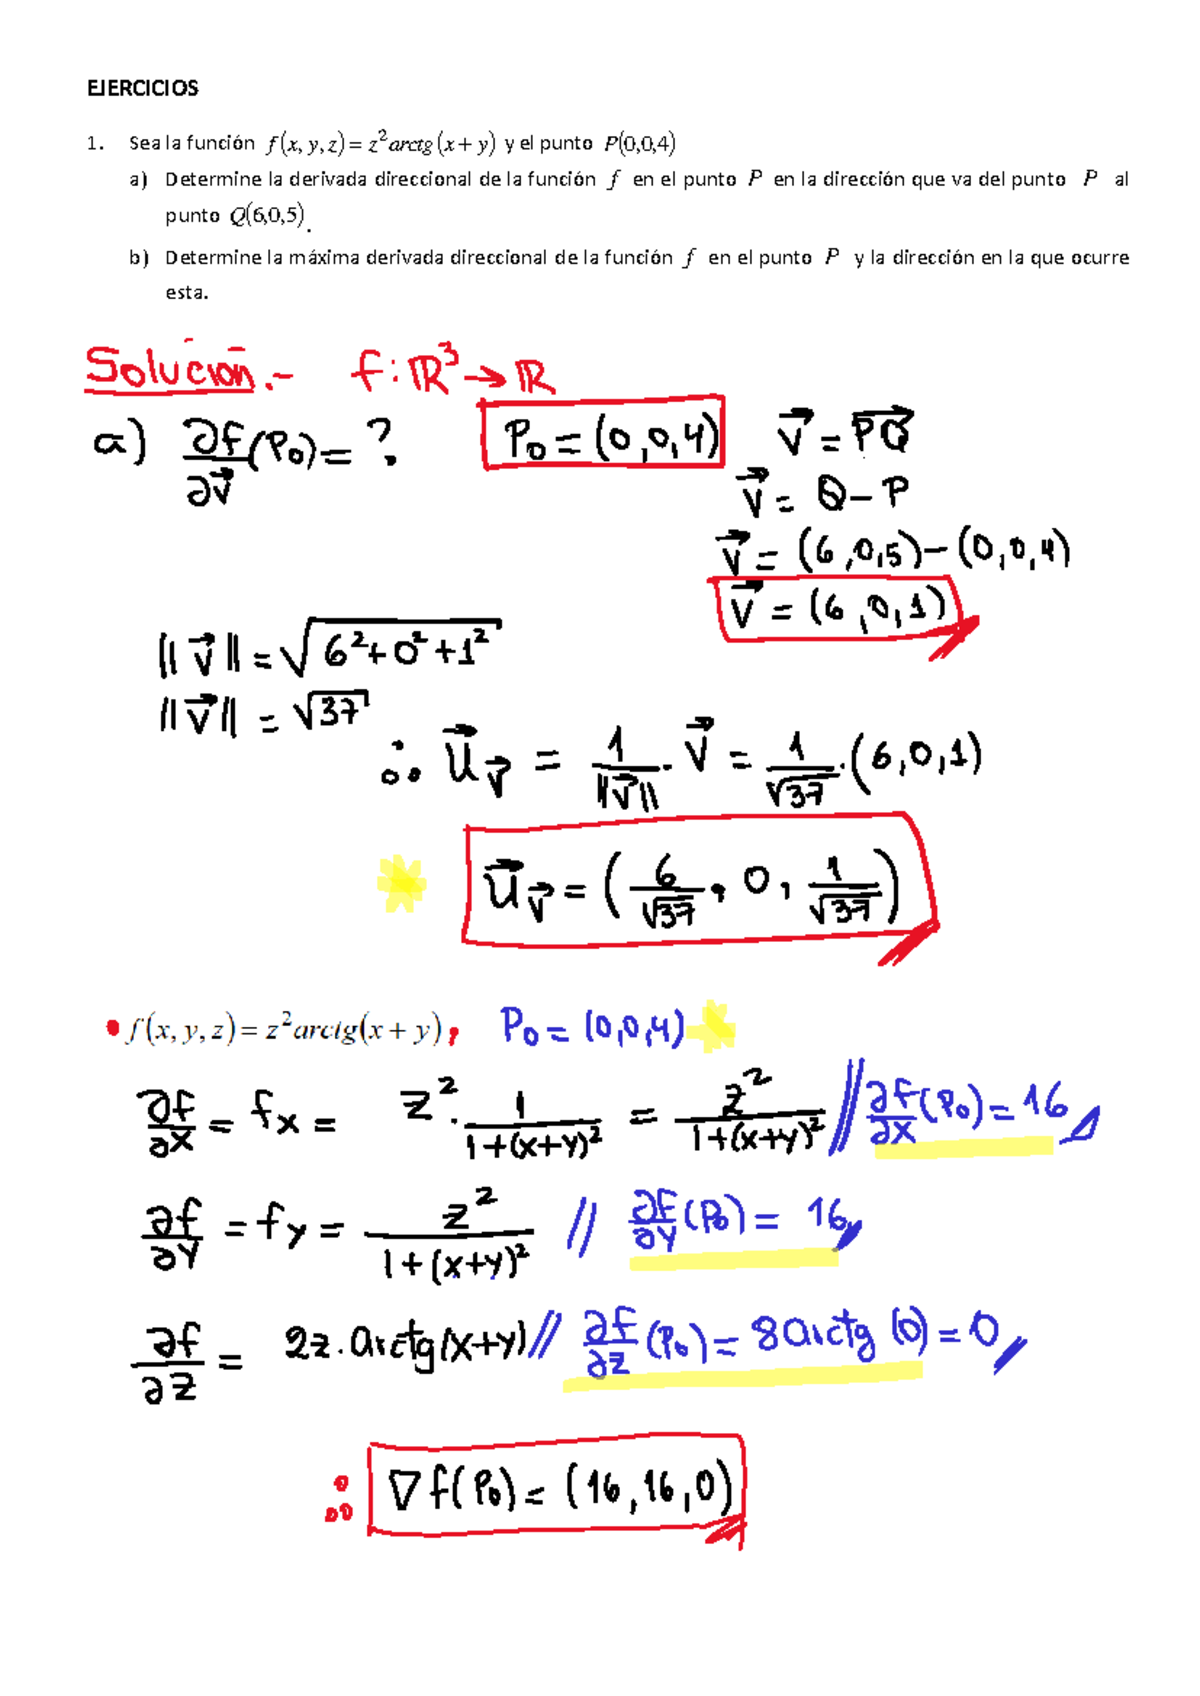 EJERCICIOS
1. Sea la función f(x, y, z) = z² arctg (x + y) y el punto P(0,0,4)
a) Determine la derivada direccional de la función f en el punto P en la dirección que va del punto P al
punto Q(6,0,5).
b) Determine la máxima derivada direccional de la función f en el punto P y la dirección en la que ocurre
esta.
Solución.- f: ℝ³ → ℝ
a) ∂f/∂v⃗ (P₀) = ? P₀ = (0,0,4) v⃗ = PQ⃗
v⃗ = Q − P
v⃗ = (6,0,5) − (0,0,4)
v⃗ = (6,0,1)
||v⃗|| = √(6² + 0² + 1²)
||v⃗|| = √37
∴ u⃗_v⃗ = 1/||v⃗|| · v⃗ = 1/√37 · (6,0,1)
u⃗_v⃗ = (6/√37, 0, 1/√37)
• f(x, y, z) = z² arctg(x + y), P₀ = (0,0,4)
∂f/∂x = fx = z² · 1/(1+(x+y)²) = z²/(1+(x+y)²) // ∂f/∂x (P₀) = 16
∂f/∂y = fy = z²/(1+(x+y)²) // ∂f/∂y (P₀) = 16
∂f/∂z = 2z · arctg(x+y) // ∂f/∂z (P₀) = 8 arctg (0) = 0
∴ ∇f(P₀) = (16, 16, 0)